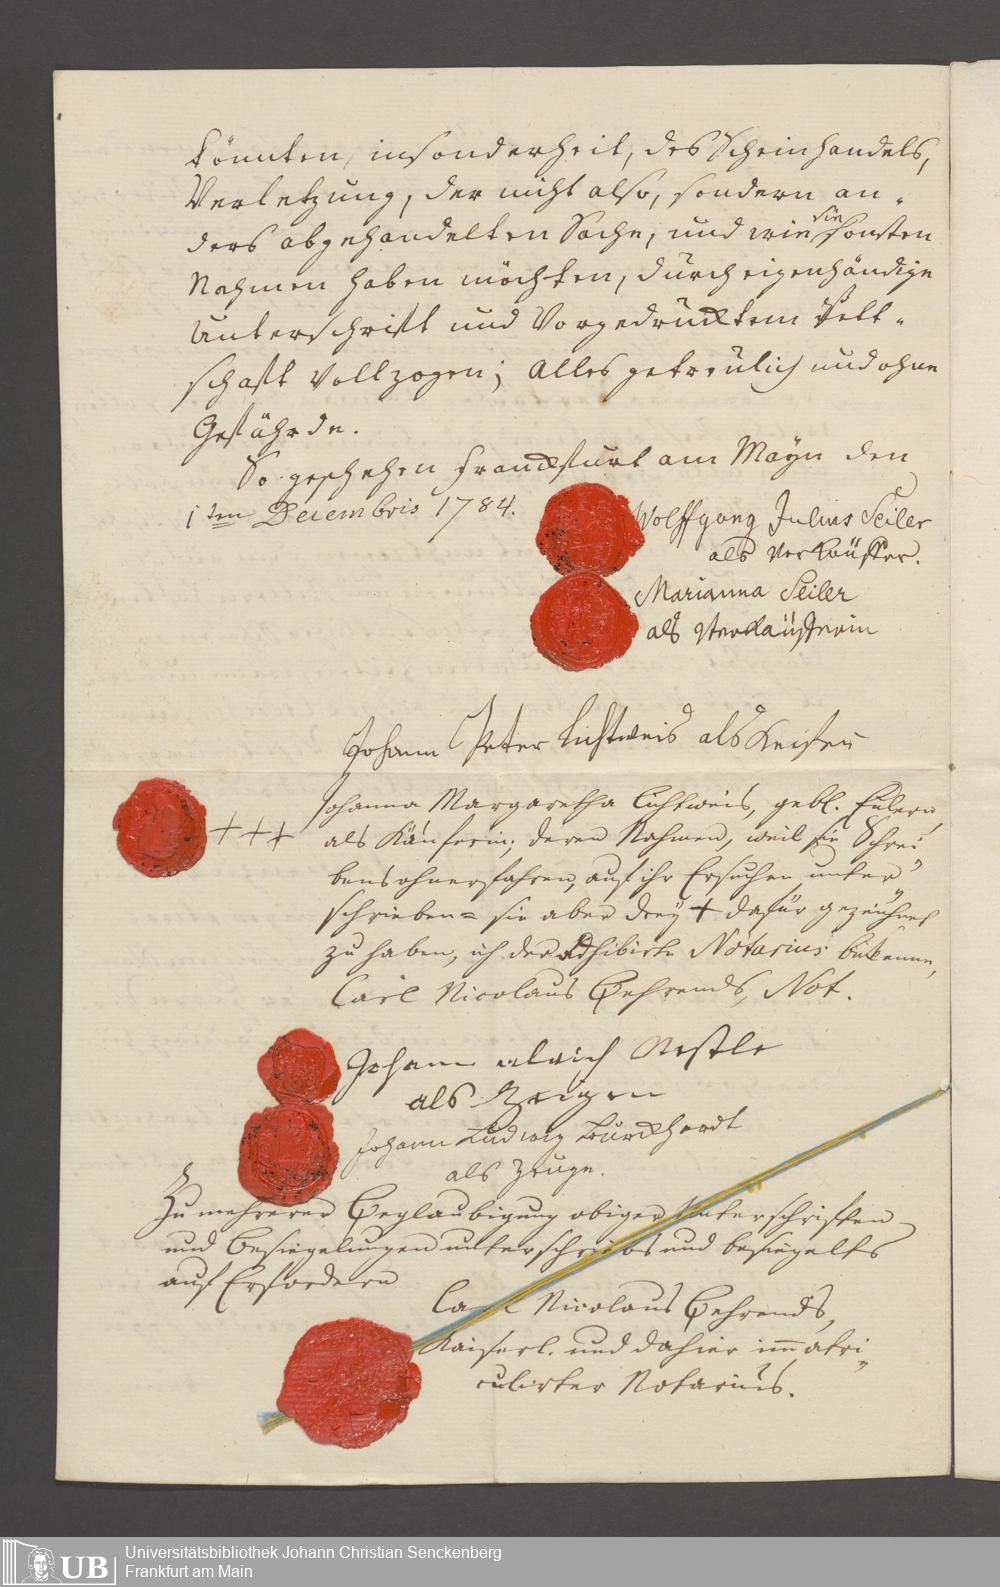 könnten, insonderheit, des Scheinhandels,
Verletzung, der nicht also, sondern an-
ders abgehandelten Sache, und wie sie sonsten
Nahmen haben möchten, durch eigenhändige
Unterschrifft und Vorgedrucktem Pett-
schafft Vollzogen; Alles getreülich und ohne
Gefährde.
So geschehen Franckfurt am Mayn den
1ten Decembris 1784.
Wolffgang Julius Seiler
als Verkäuffer.
Marianna Seiler
als Verkäufferin
Johann Peter Lichtweis als
+++
Johanna Margaretha Lichtweis, gebl. Eulern,
als Käuferin; deren Nahmen, weil sie Schrei
bens ohnerfahren, auf ihr Ersuchen unter"
schrieben= sie aber drey + dafür gezeichnet
zu haben, ich der adhibirte Notarius bekenne,
Carl Nicolaus Behrends, Not.
Johann Nestle
als Zeigen
Johann Ludwig Burckhardt
als Zeuge.
Zu mehrerer Beglaubigung obiger Unterschrifften
und Besiegelungen unterschriebs und besiegelts
auf Erfordern
Carl Nicolaus Behrends,
Kaiserl. und dahier immatri"
culirter Notarius.
UB
Universitätsbibliothek Johann Christian Senckenberg
Frankfurt am Main